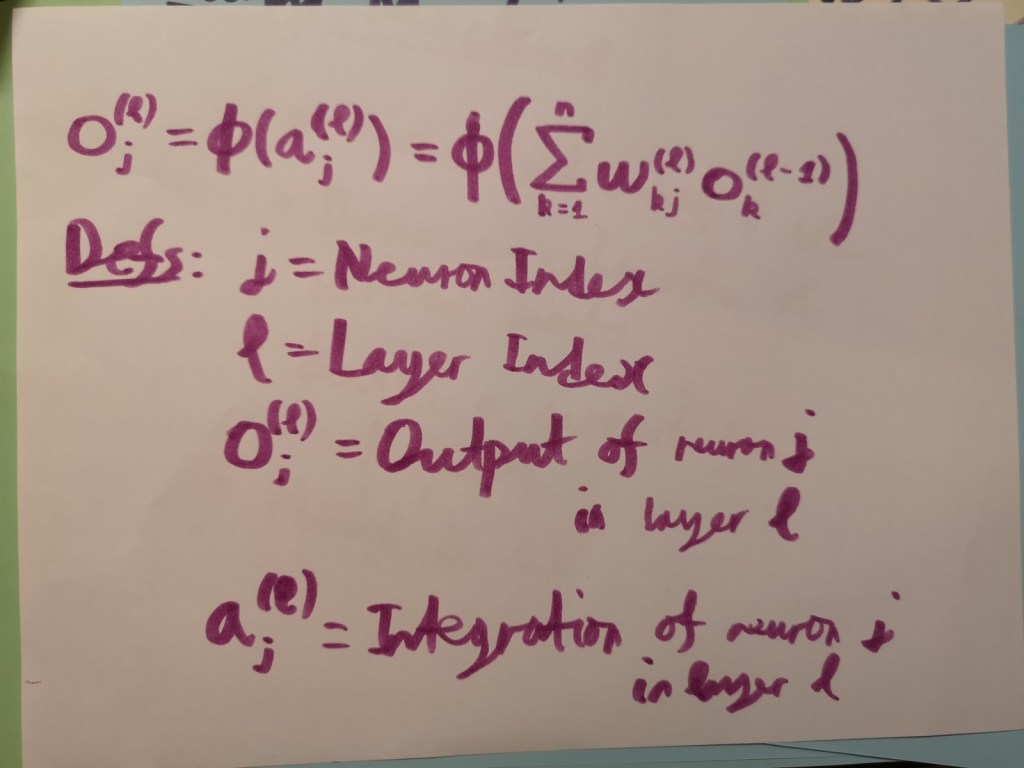 o_j^(ℓ) = ϕ(a_j^(ℓ)) = ϕ(∑_{k=1}^{n} w_{kj}^(ℓ) o_k^(ℓ-1))
Defs: j = Neuron Index
ℓ = Layer Index
o_j^(ℓ) = Output of neuron j
in layer ℓ
a_j^(ℓ) = Integration of neuron j
in layer ℓ